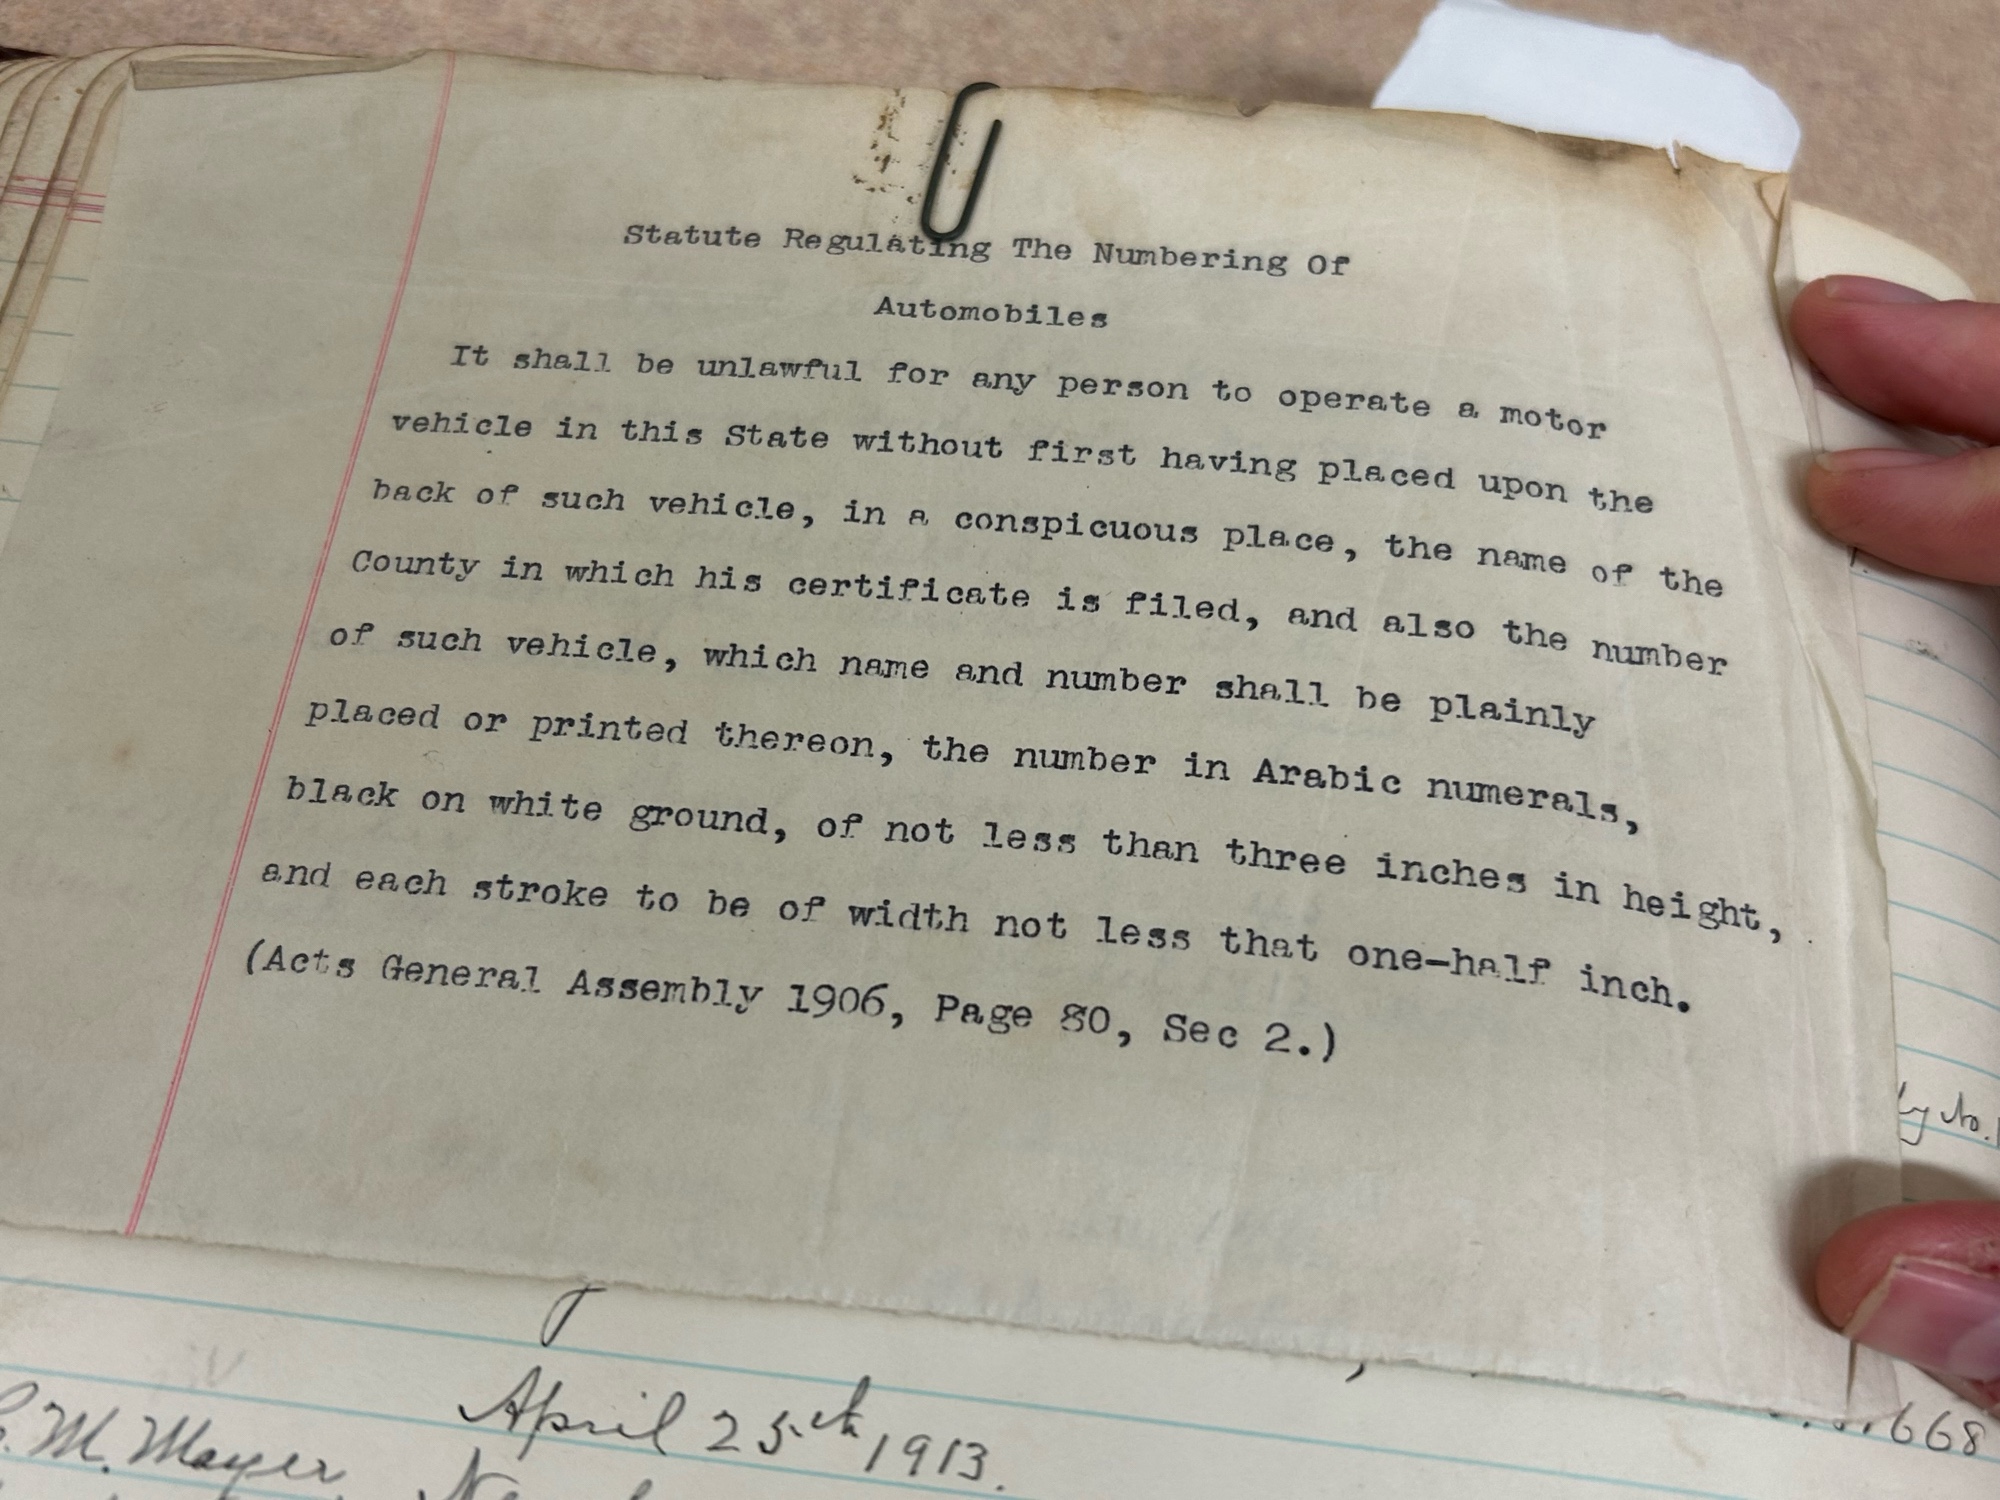 Statute Regulating The Numbering Of
Automobiles
It shall be unlawful for any person to operate a motor
vehicle in this State without first having placed upon the
back of such vehicle, in a conspicuous place, the name of the
County in which his certificate is filed, and also the number
of such vehicle, which name and number shall be plainly
placed or printed thereon, the number in Arabic numerals,
black on white ground, of not less than three inches in height,
and each stroke to be of width not less that one-half inch.
(Acts General Assembly 1906, Page 80, Sec 2.)
No.
April 25th 1913.
668
M. Mayer